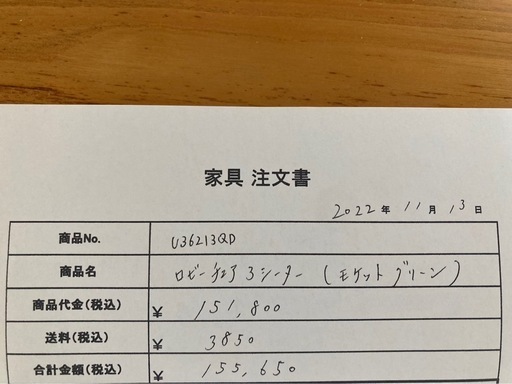 家具 注文書
2022 年 11 月 13 日
商品No. U36213QD
商品名 ロビーチェア 3シーター (モケットグリーン)
商品代金(税込) ¥ 151,800
送料(税込) ¥ 3850
合計金額(税込) ¥ 155,650